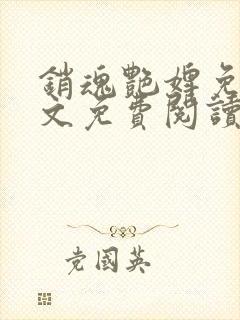 銷魂艷婢免
文免費閱讀
党國英